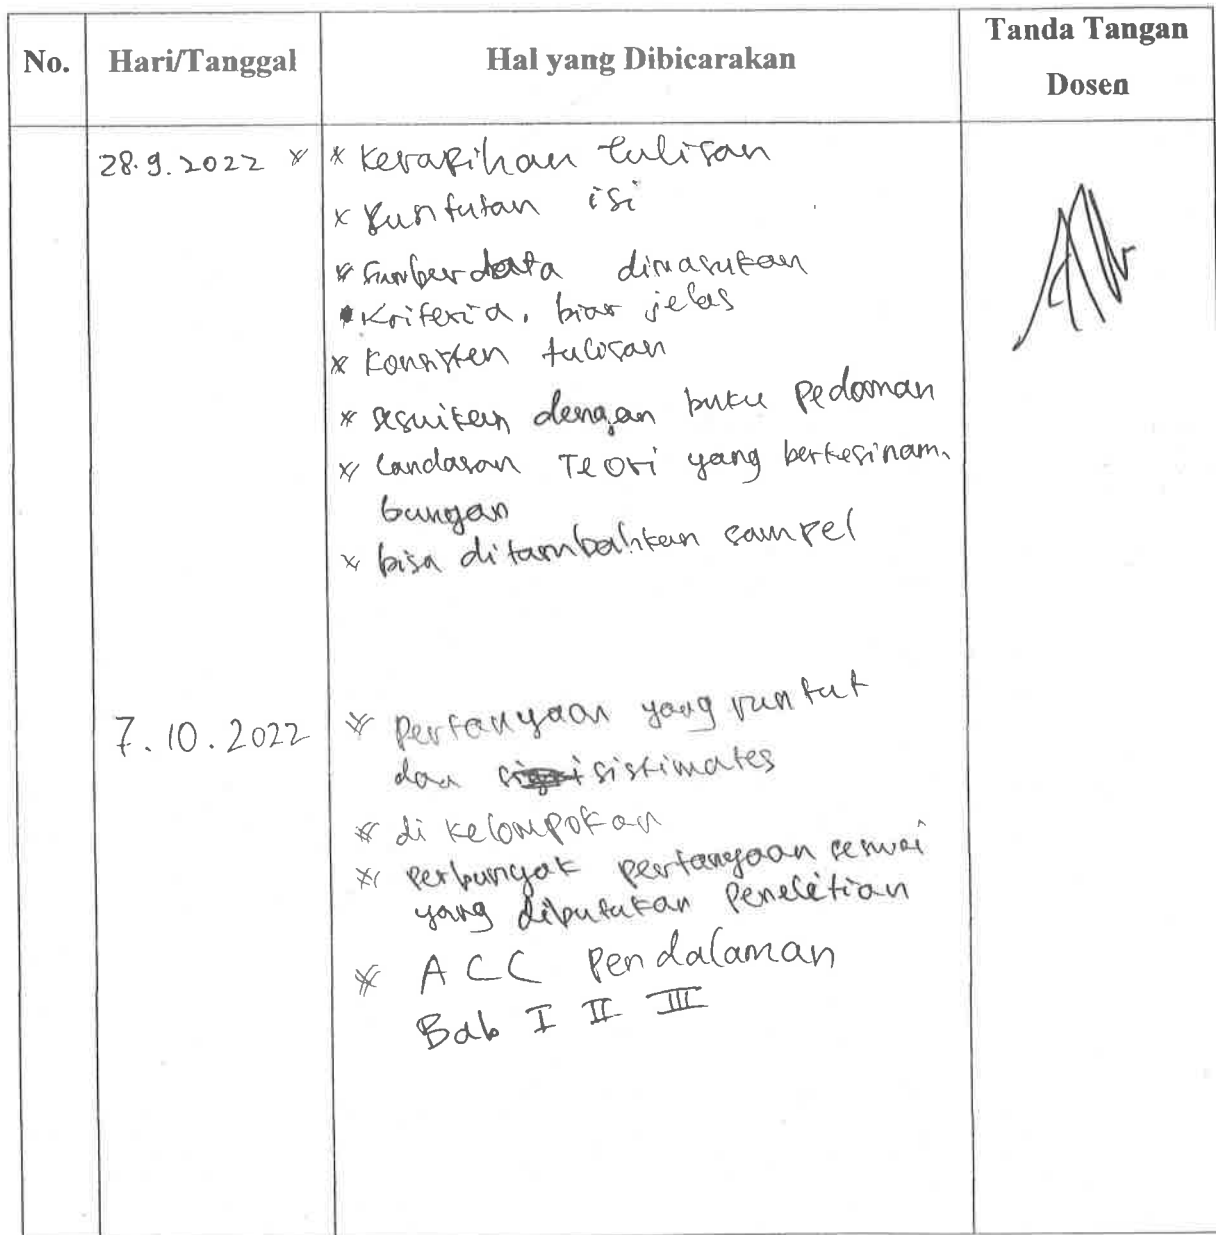 No. Hari/Tanggal Hal yang Dibicarakan Tanda Tangan
Dosen
28.9.2022 * * Kerapihan tulisan
* Runtutan isi
* Sumber data dimasukan
* Kriteria, biar jelas
* Konsisten tulisan
* Sesuiken dengan buku Pedoman
* Landasan Teori yang berkesinam-
bungan
* bisa ditambahkan sampel
7.10.2022 * Pertanyaan yang runtut
dan sistimates
* di kelompokan
* Perbanyak pertanyaan sesuai
yang dibutukan Penelitian
* ACC Pendalaman
Bab I II III